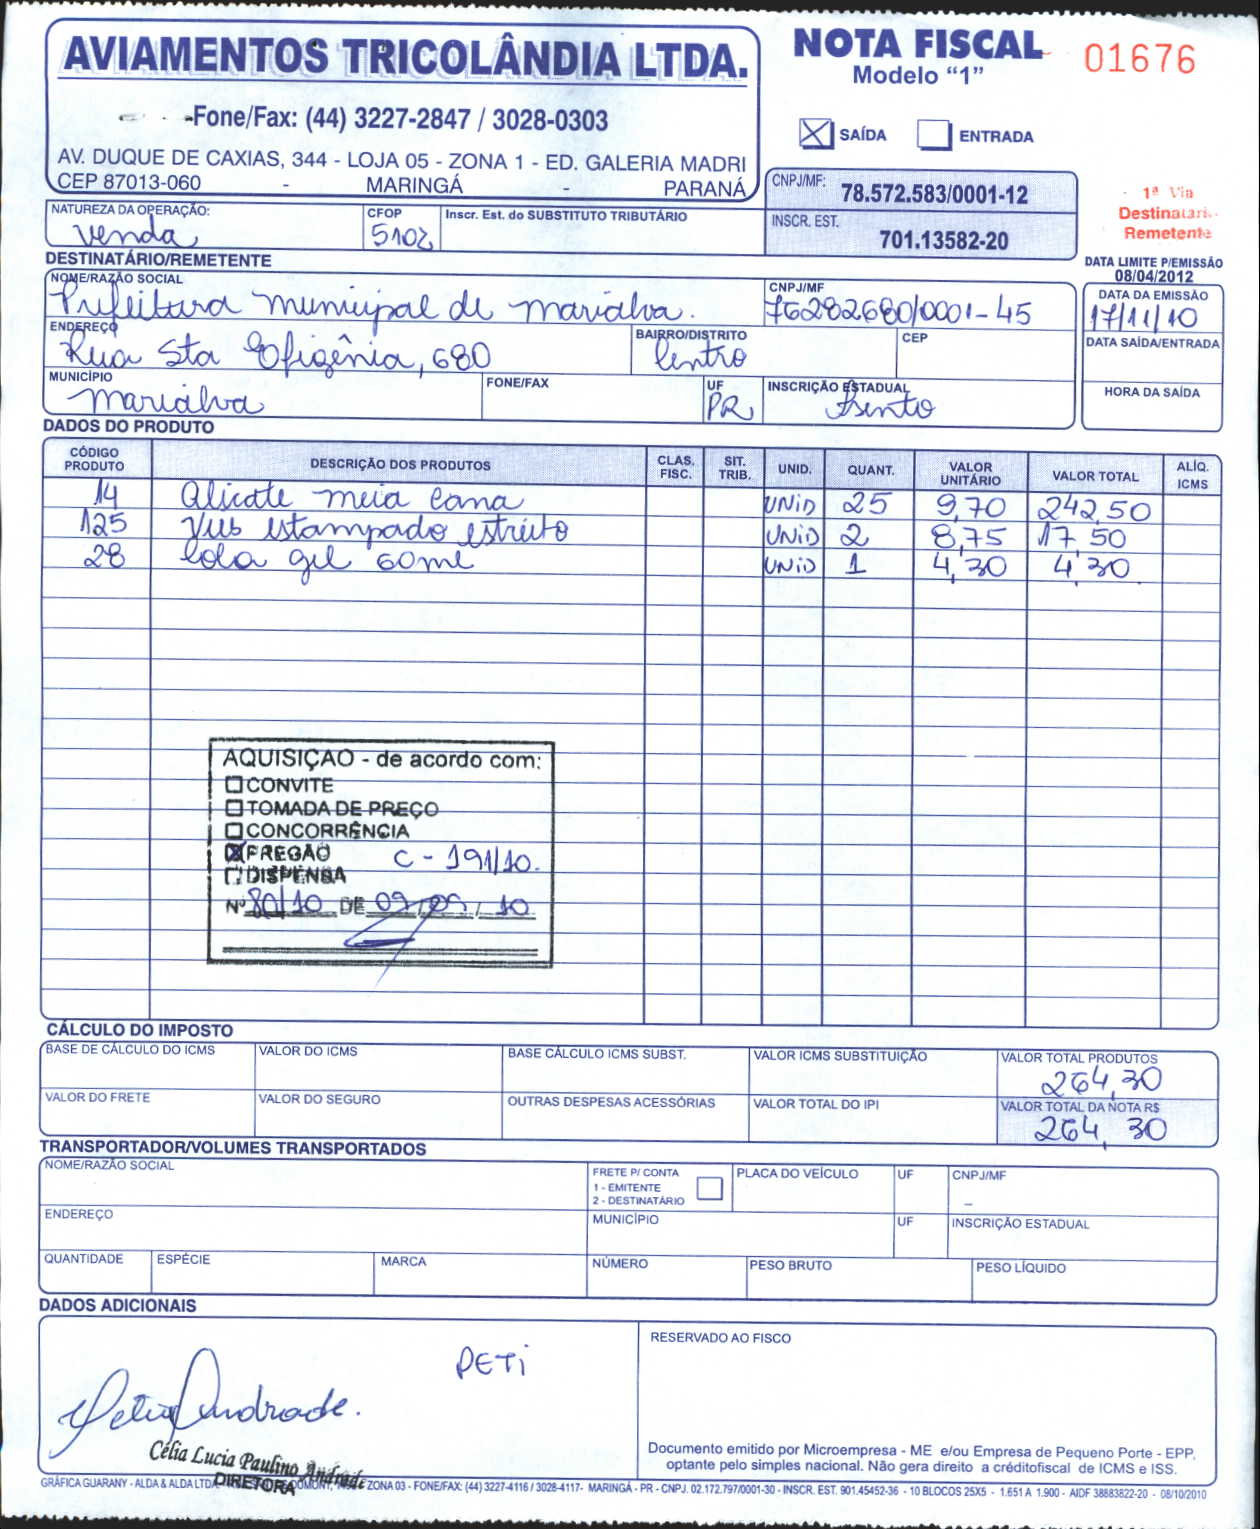 AVIAMENTOS TRICOLÂNDIA LTDA.
Fone/Fax: (44) 3227-2847 / 3028-0303
AV. DUQUE DE CAXIAS, 344 - LOJA 05 - ZONA 1 - ED. GALERIA MADRI
CEP 87013-060 - MARINGÁ - PARANÁ
NOTA FISCAL 01676
Modelo “1”
SAÍDA ENTRADA
CNPJ/MF: 78.572.583/0001-12
INSCR. EST. 701.13582-20
1ª Via
Destinatári-
Remetente
DATA LIMITE P/EMISSÃO
08/04/2012
NATUREZA DA OPERAÇÃO: Venda
CFOP 5102
Inscr. Est. do SUBSTITUTO TRIBUTÁRIO
DESTINATÁRIO/REMETENTE
NOME/RAZÃO SOCIAL Prefeitura Municipal de Marialva.
CNPJ/MF 76282680/0001-45
DATA DA EMISSÃO 17/11/10
ENDEREÇO Rua Sta Efigênia, 680
BAIRRO/DISTRITO Centro
CEP
DATA SAÍDA/ENTRADA
MUNICÍPIO Marialva
FONE/FAX
UF PR
INSCRIÇÃO ESTADUAL Isento
HORA DA SAÍDA
DADOS DO PRODUTO
CÓDIGO PRODUTO DESCRIÇÃO DOS PRODUTOS CLAS. FISC. SIT. TRIB. UNID. QUANT. VALOR UNITÁRIO VALOR TOTAL ALÍQ. ICMS
14 Alicate meia cana UNID 25 9,70 242,50
125 Viés estampado estreito UNID 2 8,75 17,50
28 Cola gel 60ml UNID 1 4,30 4,30
AQUISIÇÃO - de acordo com:
CONVITE
TOMADA DE PREÇO
CONCORRÊNCIA
PREGÃO C - 191/10.
DISPENSA
Nº 80/10 DE 09/09/10
CÁLCULO DO IMPOSTO
BASE DE CÁLCULO DO ICMS VALOR DO ICMS BASE CÁLCULO ICMS SUBST. VALOR ICMS SUBSTITUIÇÃO VALOR TOTAL PRODUTOS
264,30
VALOR DO FRETE VALOR DO SEGURO OUTRAS DESPESAS ACESSÓRIAS VALOR TOTAL DO IPI VALOR TOTAL DA NOTA R$
264,30
TRANSPORTADOR/VOLUMES TRANSPORTADOS
NOME/RAZÃO SOCIAL FRETE P/ CONTA PLACA DO VEÍCULO UF CNPJ/MF
1 - EMITENTE
2 - DESTINATÁRIO
ENDEREÇO MUNICÍPIO UF INSCRIÇÃO ESTADUAL
QUANTIDADE ESPÉCIE MARCA NÚMERO PESO BRUTO PESO LÍQUIDO
DADOS ADICIONAIS
RESERVADO AO FISCO
PETI
Célia Andrade.
Célia Lucia Paulino Andrade
DIRETORA
Documento emitido por Microempresa - ME e/ou Empresa de Pequeno Porte - EPP,
optante pelo simples nacional. Não gera direito a créditofiscal de ICMS e ISS.
GRÁFICA GUARANY - ALDA & ALDA LTDA ZONA 03 - FONE/FAX: (44) 3227-4116 / 3028-4117- MARINGÁ - PR - CNPJ. 02.172.797/0001-30 - INSCR. EST. 901.45452-36 - 10 BLOCOS 25X5 - 1.651 A 1.900 - AIDF 38883822-20 - 08/10/2010